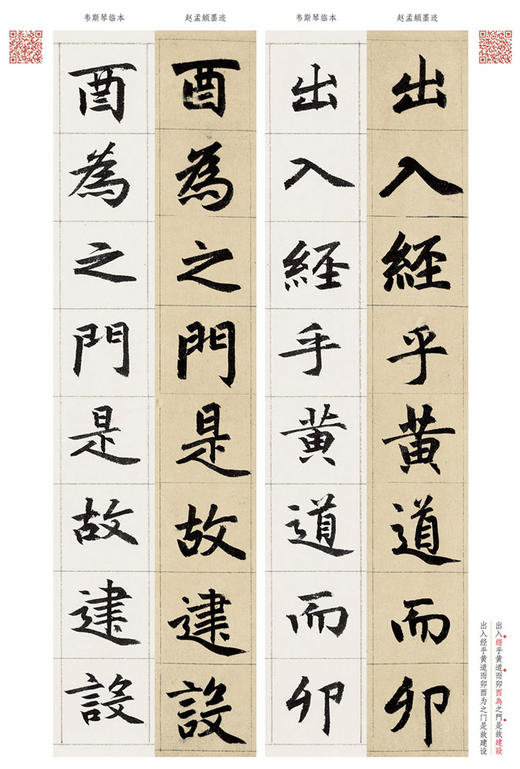 赵孟頫墨迹
韦斯琴临本
赵孟頫墨迹
韦斯琴临本
出入經乎黄道而卯
出入經手黄道而卯
酉為之門是故建設
酉為之門是故建設
出入經乎黄道而卯酉為之門是故建設
出入经乎黄道而卯酉为之门是故建设